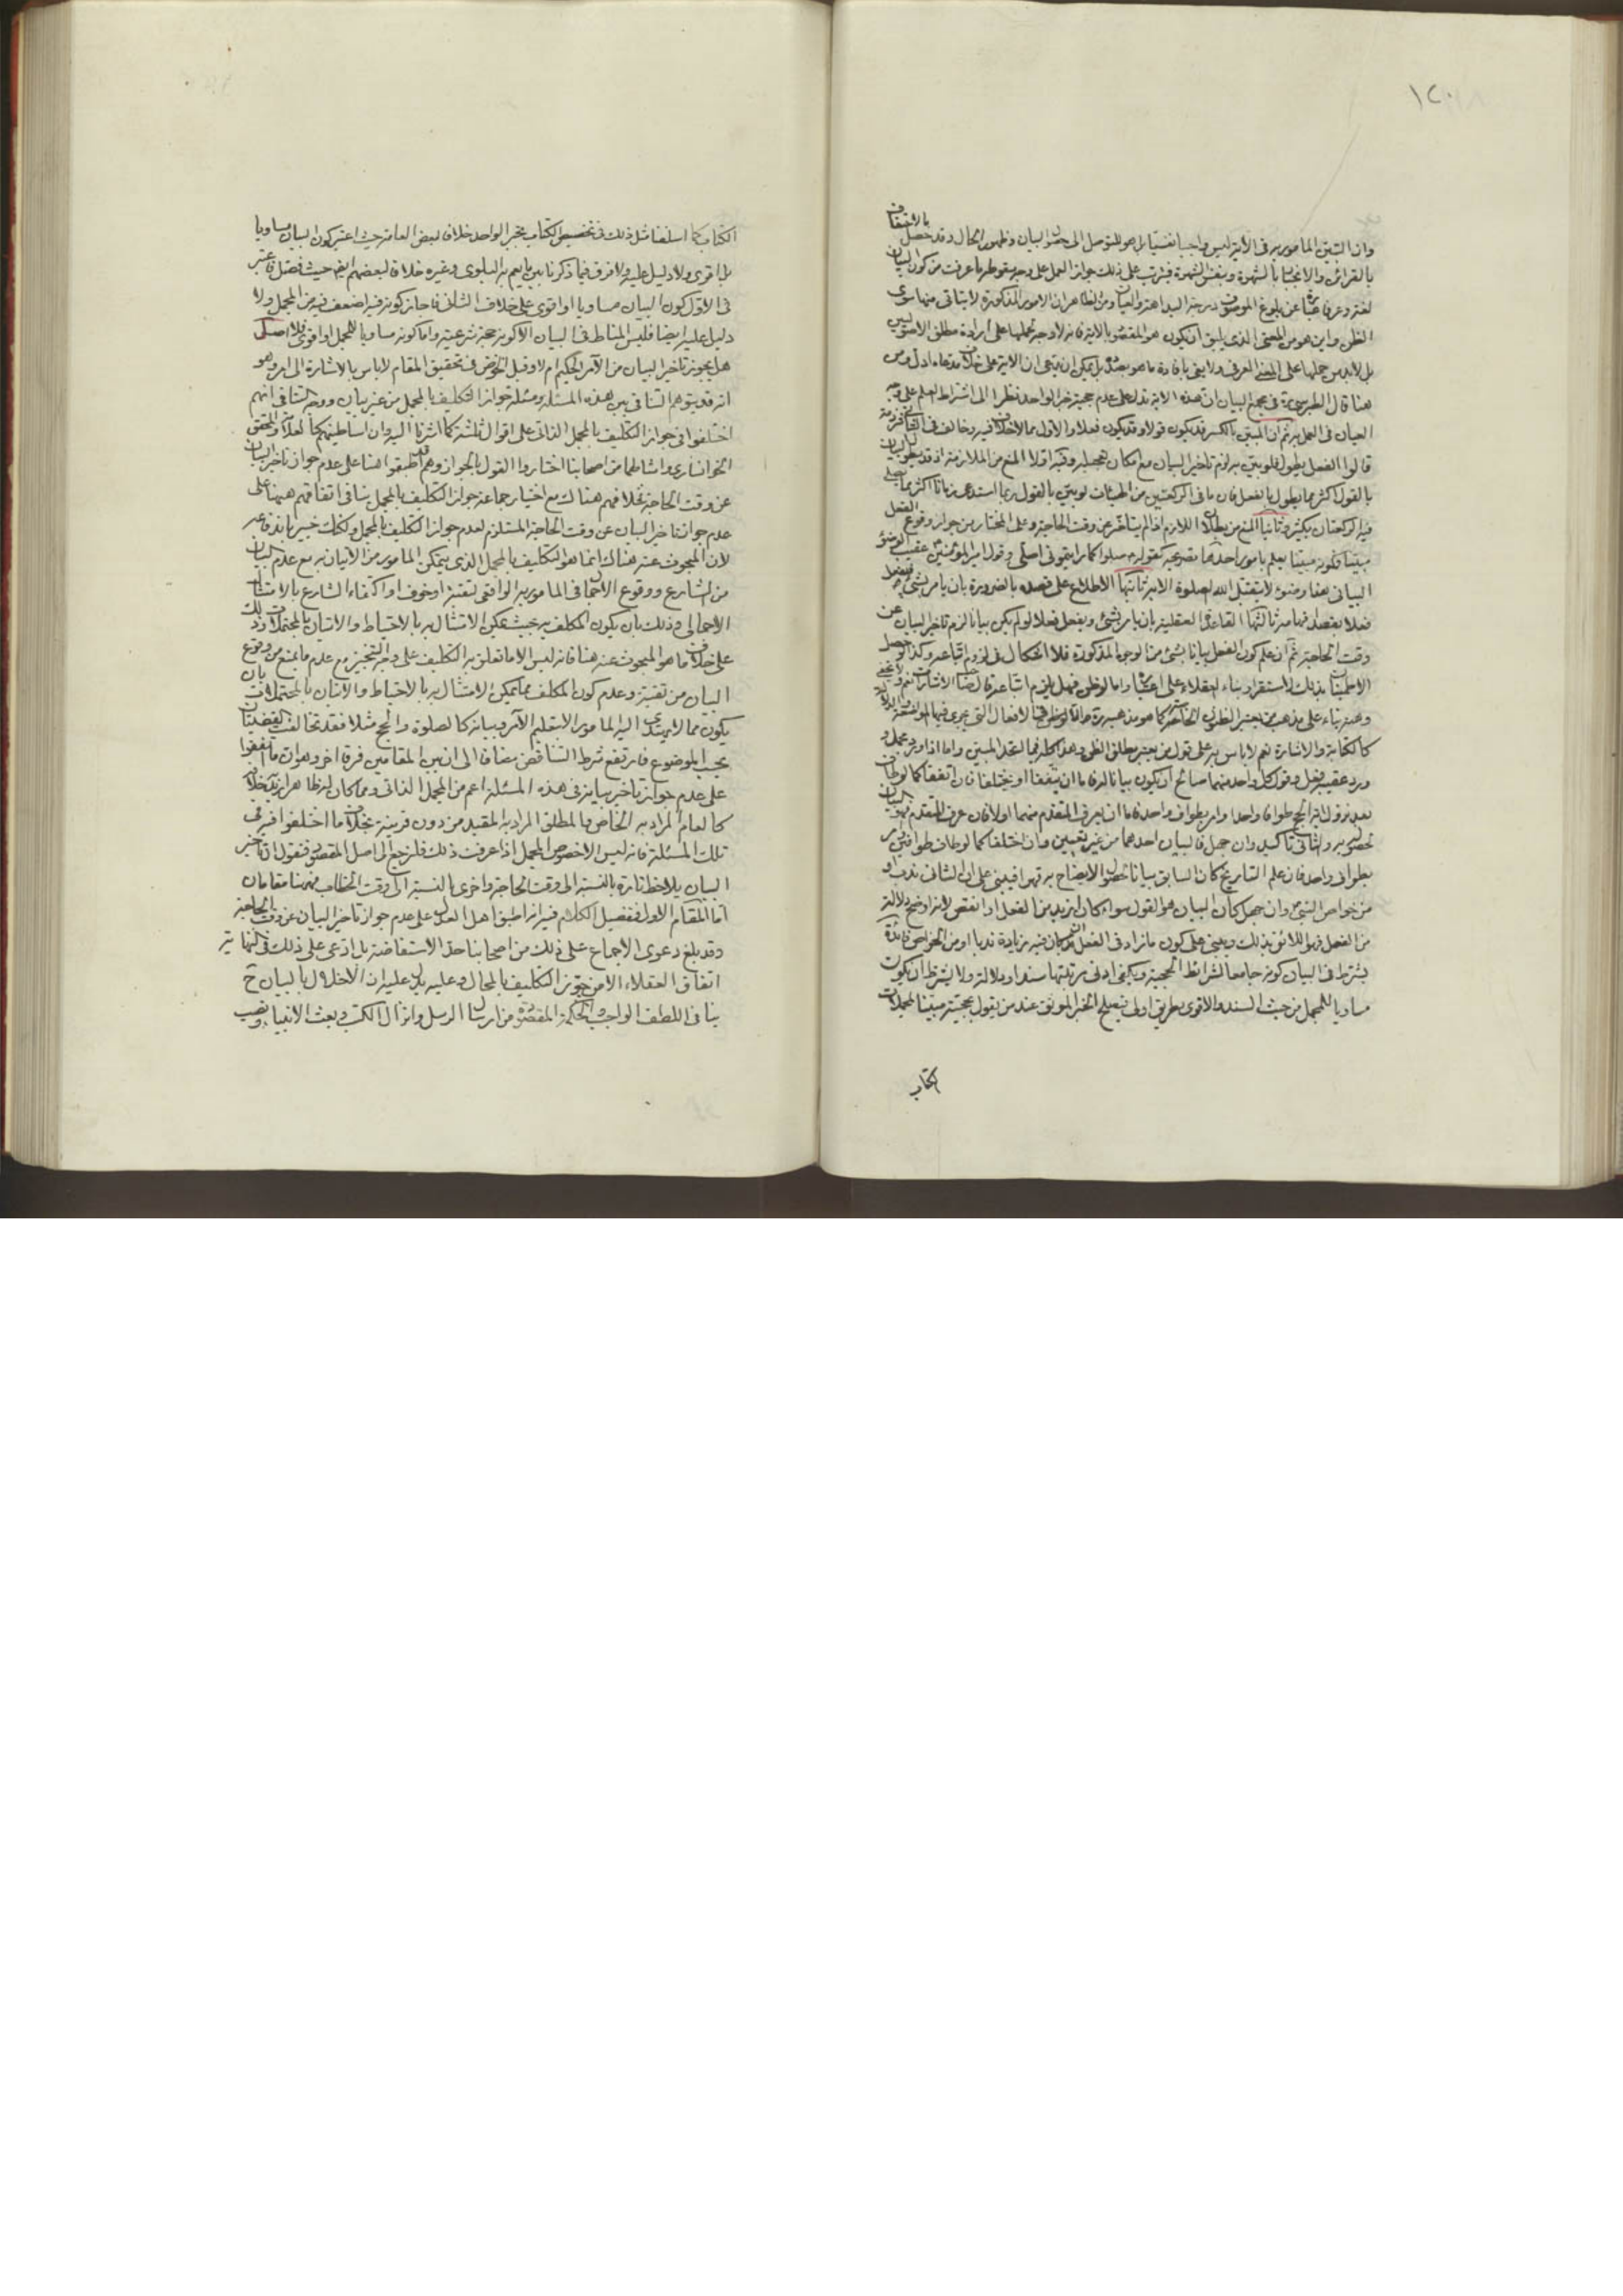 ١٢٠
وان التبين المأمور به فى الآية ليس واجبا نفسيا بل هو للتوصل الى حصول البيان وظهور الحال وقد حصل بالاحتفاف
بالقرائن والانجبار بالشهرة وبنفس الشهرة فيترتب على ذلك جواز العمل على وجه ما عرفت من كون البيان
لغة وعرفا عن بلوغ الموصوف درجة البداهة والعيان ومن الظاهر ان الامور المذكورة لا يتأتى منها سوى
الظن واين هو من المعنى الذى يليق ان يكون هو المقصود بالآية فانه لا وجه لحملها على ارادة مطلق
بل لا بد من حملها على المعنى العرفى ولا يفى بافادة ما هو بصدده بل يمكن ان يدعى ان الآية على خلاف مدعاه ادل ومن
هنا قال الطبرسى فى مجمع البيان ان هذه الآية تدل على عدم حجية خبر الواحد نظرا الى اشتراط العلم على وجه
العيان فى العمل به ثم ان المبين بالكسر قد يكون قولا وقد يكون فعلا والاول مما لا خلاف فيه وخالف فى الثانى
قالوا الفعل يطول فلو بين به لزم تاخير البيان مع امكان تعجيله وفيه اولا المنع من الملازمة اذ قد يطول البيان
بالقول اكثر مما يطول بالفعل فان ما فى الركعتين من الهيئات لو بين بالقول ربما استدعى زمانا اكثر مما يصلى
فيه الركعتان بكثير وثانيا المنع من بطلان اللازم اذا لم يتأخر عن وقت الحاجة وعلى المختار من جواز وقوع الفعل
مبينا فكونه مبينا يعلم بامور احدها تصريحه كقوله صلوا كما رايتمونى اصلى وقول امير المؤمنين عقيب الوضوء
البيانى هذا وضوء لا يتقبل الله الصلوة الا به ثانيها الاطلاع على قصده بالضرورة بان يأمر بشئ ويفعل
فعلا يقصد افهامه ثالثها القاعدة العقلية بان يأمر بشئ ويفعل فعلا لو لم يكن بيانا لزم تاخير البيان عن
وقت الحاجة ثم ان علم كون الفعل بيانا بشئ من الوجوه المذكورة فلا اشكال فى لزوم اتباعه وكذا لو حصل
الاطمينان بذلك لاستقرار بناء العقلاء على اعتباره واما لو ظن فهل يلزم اتباعه قال صاحب الاشارات نعم
كالكتابة والاشارة نعم لا باس به على قول من يعتبر مطلق الظن وهذا كله فيما اتحد المبين واما اذا ورد مجمل و
ورد عقيبه فعل وقول كل واحد منهما صالح ان يكون بيانا له فاما ان يتفقا او يختلفا فان اتفقا كما لو طاف
بعد نزول آية الحج طوافا واحدا وامر بطواف واحد فاما ان يعرف المتقدم منهما او لا فان عرف المتقدم فهو البيان
لحصوله به والثانى تاكيد وان جهل فالبيان احدهما من غير تعيين وان اختلفا كما لو طاف طوافين وامر
بطواف واحد فان علم التاريخ كان السابق بيانا لحصول الايضاح به فيبنى على ان الثانى ندب او
من خواص النبى وان جهل كان البيان هو القول سواء كان ازيد من الفعل او انقص لانه اوضح دلالة
من الفعل فهو اللائق بذلك ويبنى على كون ما زاد فى الفعل ان كان فيه زيادة ندبا او من الخواص فائدة
يشترط فى البيان كونه جامعا لشرائط الحجية ويكفى ادنى مرتبتها سندا ودلالة ولا يشترط ان يكون
مساويا للمجمل من حيث السند والاقوى بطريق اولى فيصلح الخبر الموثق عند من يقول بحجيته مبينا لمجملات
الكتاب
الكتاب كما اسلفنا مثل ذلك فى تخصيص الكتاب بخبر الواحد خلافا لبعض العامة حيث اعتبر كون البيان مساويا
بل اقوى ولا دليل عليه ولا فرق فيما ذكرنا بين ما يعم به البلوى وغيره خلافا لبعضهم ايضا حيث فصل فاعتبر
فى الاول كون البيان مساويا او اقوى على خلاف الثانى فاجاز كونه فيه اضعف من المجمل ولا
دليل عليه ايضا فليس المناط فى البيان الا كونه حجة شرعية واما كونه مساويا للمجمل او اقوى فلا اصل
هل يجوز تاخير البيان من الآمر الحكيم ام لا وقبل الخوض فى تحقيق المقام لا باس بالاشارة الى امر وهو
انه قد يتوهم التنافى بين هذه المسئلة ومسئلة جواز التكليف بالمجمل من غير بيان ووجه التنافى انهم
اختلفوا فى جواز التكليف بالمجمل الذاتى على اقوال ثلثة كما اشرنا اليه وان اساطينهم كالعلامة والمحقق
الخوانسارى وامثالهما من اصحابنا اختاروا القول بالجواز وهم قد اطبقوا هنا على عدم جواز تاخير البيان
عن وقت الحاجة فخلافهم هناك مع اختيار جماعة جواز التكليف بالمجمل ينافى اتفاقهم هيهنا على
عدم جواز تاخير البيان عن وقت الحاجة المستلزم لعدم جواز التكليف بالمجمل ولكنك خبير باندفاعه
لان المبحوث عنه هناك انما هو التكليف بالمجمل الذى يتمكن المأمور من الاتيان به مع عدم البيان
من الشارع ووقوع الاجمال فى المأمور به الواقعى لتقية او خوف او اكتفاء الشارع بالامتثال
الاجمالى وذلك بان يكون المكلف به بحيث يمكن الامتثال به بالاحتياط والاتيان بالمحتملات وذلك
على خلاف ما هو المبحوث عنه هنا فانه ليس الا ما تعلق به التكليف على وجه التنجيز مع عدم ما يمنع من وقوع
البيان من تقية وعدم كون المكلف مما يمكن الامتثال به بالاحتياط والاتيان بالمحتملات بان
يكون مما لا يهتدى اليه المأمور الا بتعليم الآمر وبيانه كالصلوة والحج مثلا فقد تخالفت القضيتان
بحسب الموضوع فارتفع شرط التناقض مضافا الى ان بين المقامين فرقا آخر وهو ان ما اتفقوا
على عدم جواز تاخير بيانه فى هذه المسئلة اعم من المجمل الذاتى ومما كان له ظاهر اريد خلافه
كالعام المراد به الخاص والمطلق المراد به المقيد من دون قرينة بخلاف ما اختلفوا فيه فى
تلك المسئلة فانه ليس الا خصوص المجمل اذا عرفت ذلك فلنرجع الى اصل المقصود فنقول ان تاخير
البيان يلاحظ تارة بالنسبة الى وقت الحاجة واخرى بالنسبة الى وقت الخطاب فهيهنا مقامان
اما المقام الاول فتفصيل الكلام فيه انه اطبق اهل العدل على عدم جواز تاخير البيان عن وقت الحاجة
وقد بلغ دعوى الاجماع على ذلك من اصحابنا حد الاستفاضة بل ادعى على ذلك فى النهاية
اتفاق العقلاء الا من جوز التكليف بالمحال وعليه يدل عليه ان الاخلال بالبيان ح
ينافى اللطف الواجب والحكمة المقصودة من ارسال الرسل وانزال الكتب وبعث الانبياء ونصب